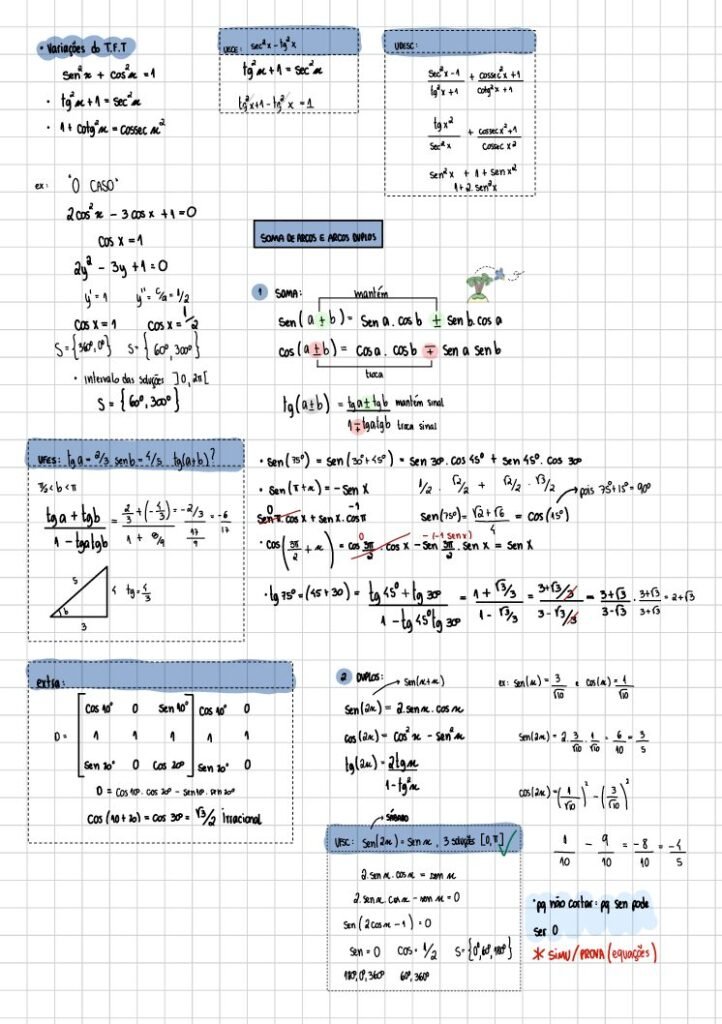 • Variações do T.F.T
sen²x + cos²x = 1
• tg²x + 1 = sec²x
• 1 + cotg²x = cossec x²
UECE: sec²x - tg²x
tg²x + 1 = sec²x
tg²x + 1 - tg²x = 1
UDESC:
sec²x - 1 / tg²x + 1 + cossec²x + 1 / cotg²x + 1
tg x² / sec²x + cossec x² + 1 / cossec x²
sen²x + 1 + sen x²
1 + 2. sen²x
ex: "O CASO"
2cos²x - 3 cos x + 1 = 0
cos x = 1
2y² - 3y + 1 = 0
y' = 1 y'' = c/a = 1/2
cos x = 1 cos x = 1/2
S = {360°, 0°} S = {60°, 300°}
• intervalo das soluções ]0, 2π[
S = {60°, 300°}
SOMA DE ARCOS E ARCOS DUPLOS
1 SOMA:
mantém
sen(a ± b) = sen a . cos b ± sen b. cos a
cos(a ± b) = cos a . cos b ∓ sen a sen b
troca
tg(a ± b) = tg a ± tg b / 1 ∓ tg a tg b mantém sinal troca sinal
UFES: tg a = 2/3 sen b = 4/5 tg(a+b)?
π/2 < b < π
tg a + tg b / 1 - tg a tg b = 2/3 + (-4/3) / 1 + 8/9 = -2/3 / 17/9 = -6/17
5 4 tg = 4/3
b
3
• sen(75°) = sen(30° + 45°) = sen 30°. cos 45° + sen 45°. cos 30°
1/2 . √2/2 + √2/2 . √3/2
pois 75° + 15° = 90°
• sen(π + x) = - sen x
0 -1
sen π. cos x + sen x. cos π
sen(75°) = √2 + √6 / 4 = cos(15°)
0 - (-1 sen x)
• cos(3π/2 + x) = cos 3π/2 . cos x - sen 3π/2 . sen x = sen x
• tg 75° = (45 + 30) = tg 45° + tg 30° / 1 - tg 45° tg 30° = 1 + √3/3 / 1 - √3/3 = 3+√3/3 / 3-√3/3 = 3+√3 / 3-√3 . 3+√3 / 3+√3 = 2+√3
extra:
cos 10° 0 sen 10° cos 10° 0
D = 1 1 1 1 1
sen 20° 0 cos 20° sen 20° 0
D = cos 10°. cos 20° - sen 10°. sen 20°
cos (10 + 20) = cos 30° = √3/2 irracional
2 DUPLOS: sen(x+x)
sen(2x) = 2. sen x. cos x
cos(2x) = cos²x - sen²x
tg(2x) = 2tg x / 1 - tg²x
ex: sen(x) = 3/√10 e cos(x) = 1/√10
sen(2x) = 2. 3/√10 . 1/√10 = 6/10 = 3/5
cos(2x) = (1/√10)² - (3/√10)²
1/10 - 9/10 = -8/10 = -4/5
UFSC: sen(2x) = sen x, 3 soluções [0, π] ✓
2. sen x. cos x = sen x
2. sen x. cos x - sen x = 0
sen(2cos x - 1) = 0
sen = 0 cos = 1/2 S = {0°, 60°, 180°}
180°, 0°, 360° 60°, 360°
• pq não cortar: pq sen pode
ser 0
* SIMU / PROVA (equações)